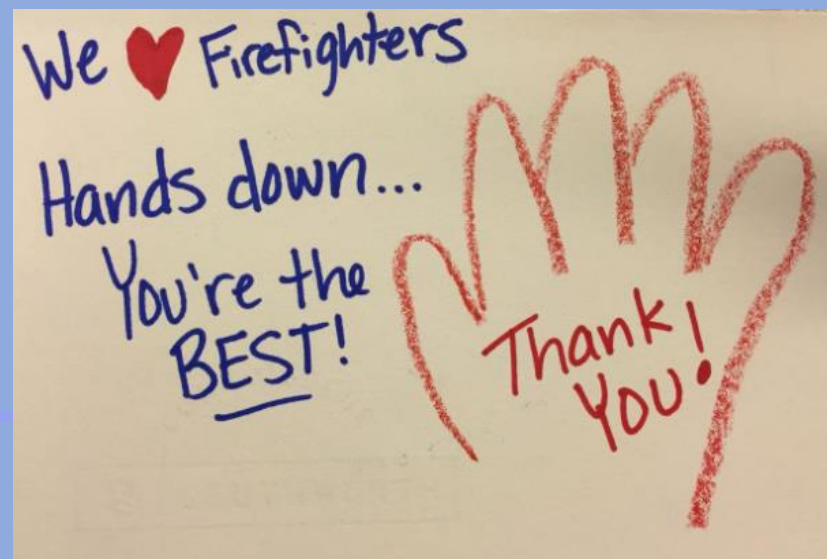 We ❤ Firefighters
Hands down...
You're the
BEST!
Thank
You!